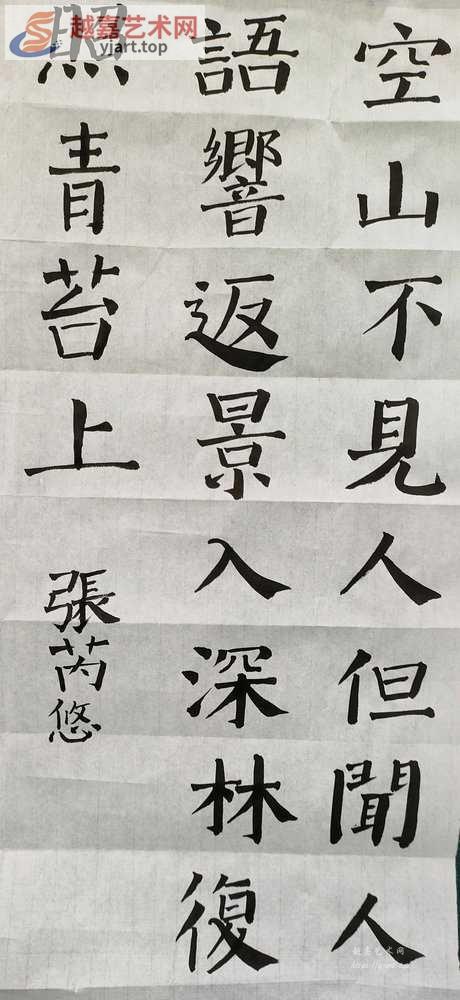 空山不見人但聞人
語響返景入深林復
照青苔上
張芮悠
越嘉艺术网
yjart.top
越嘉艺术网